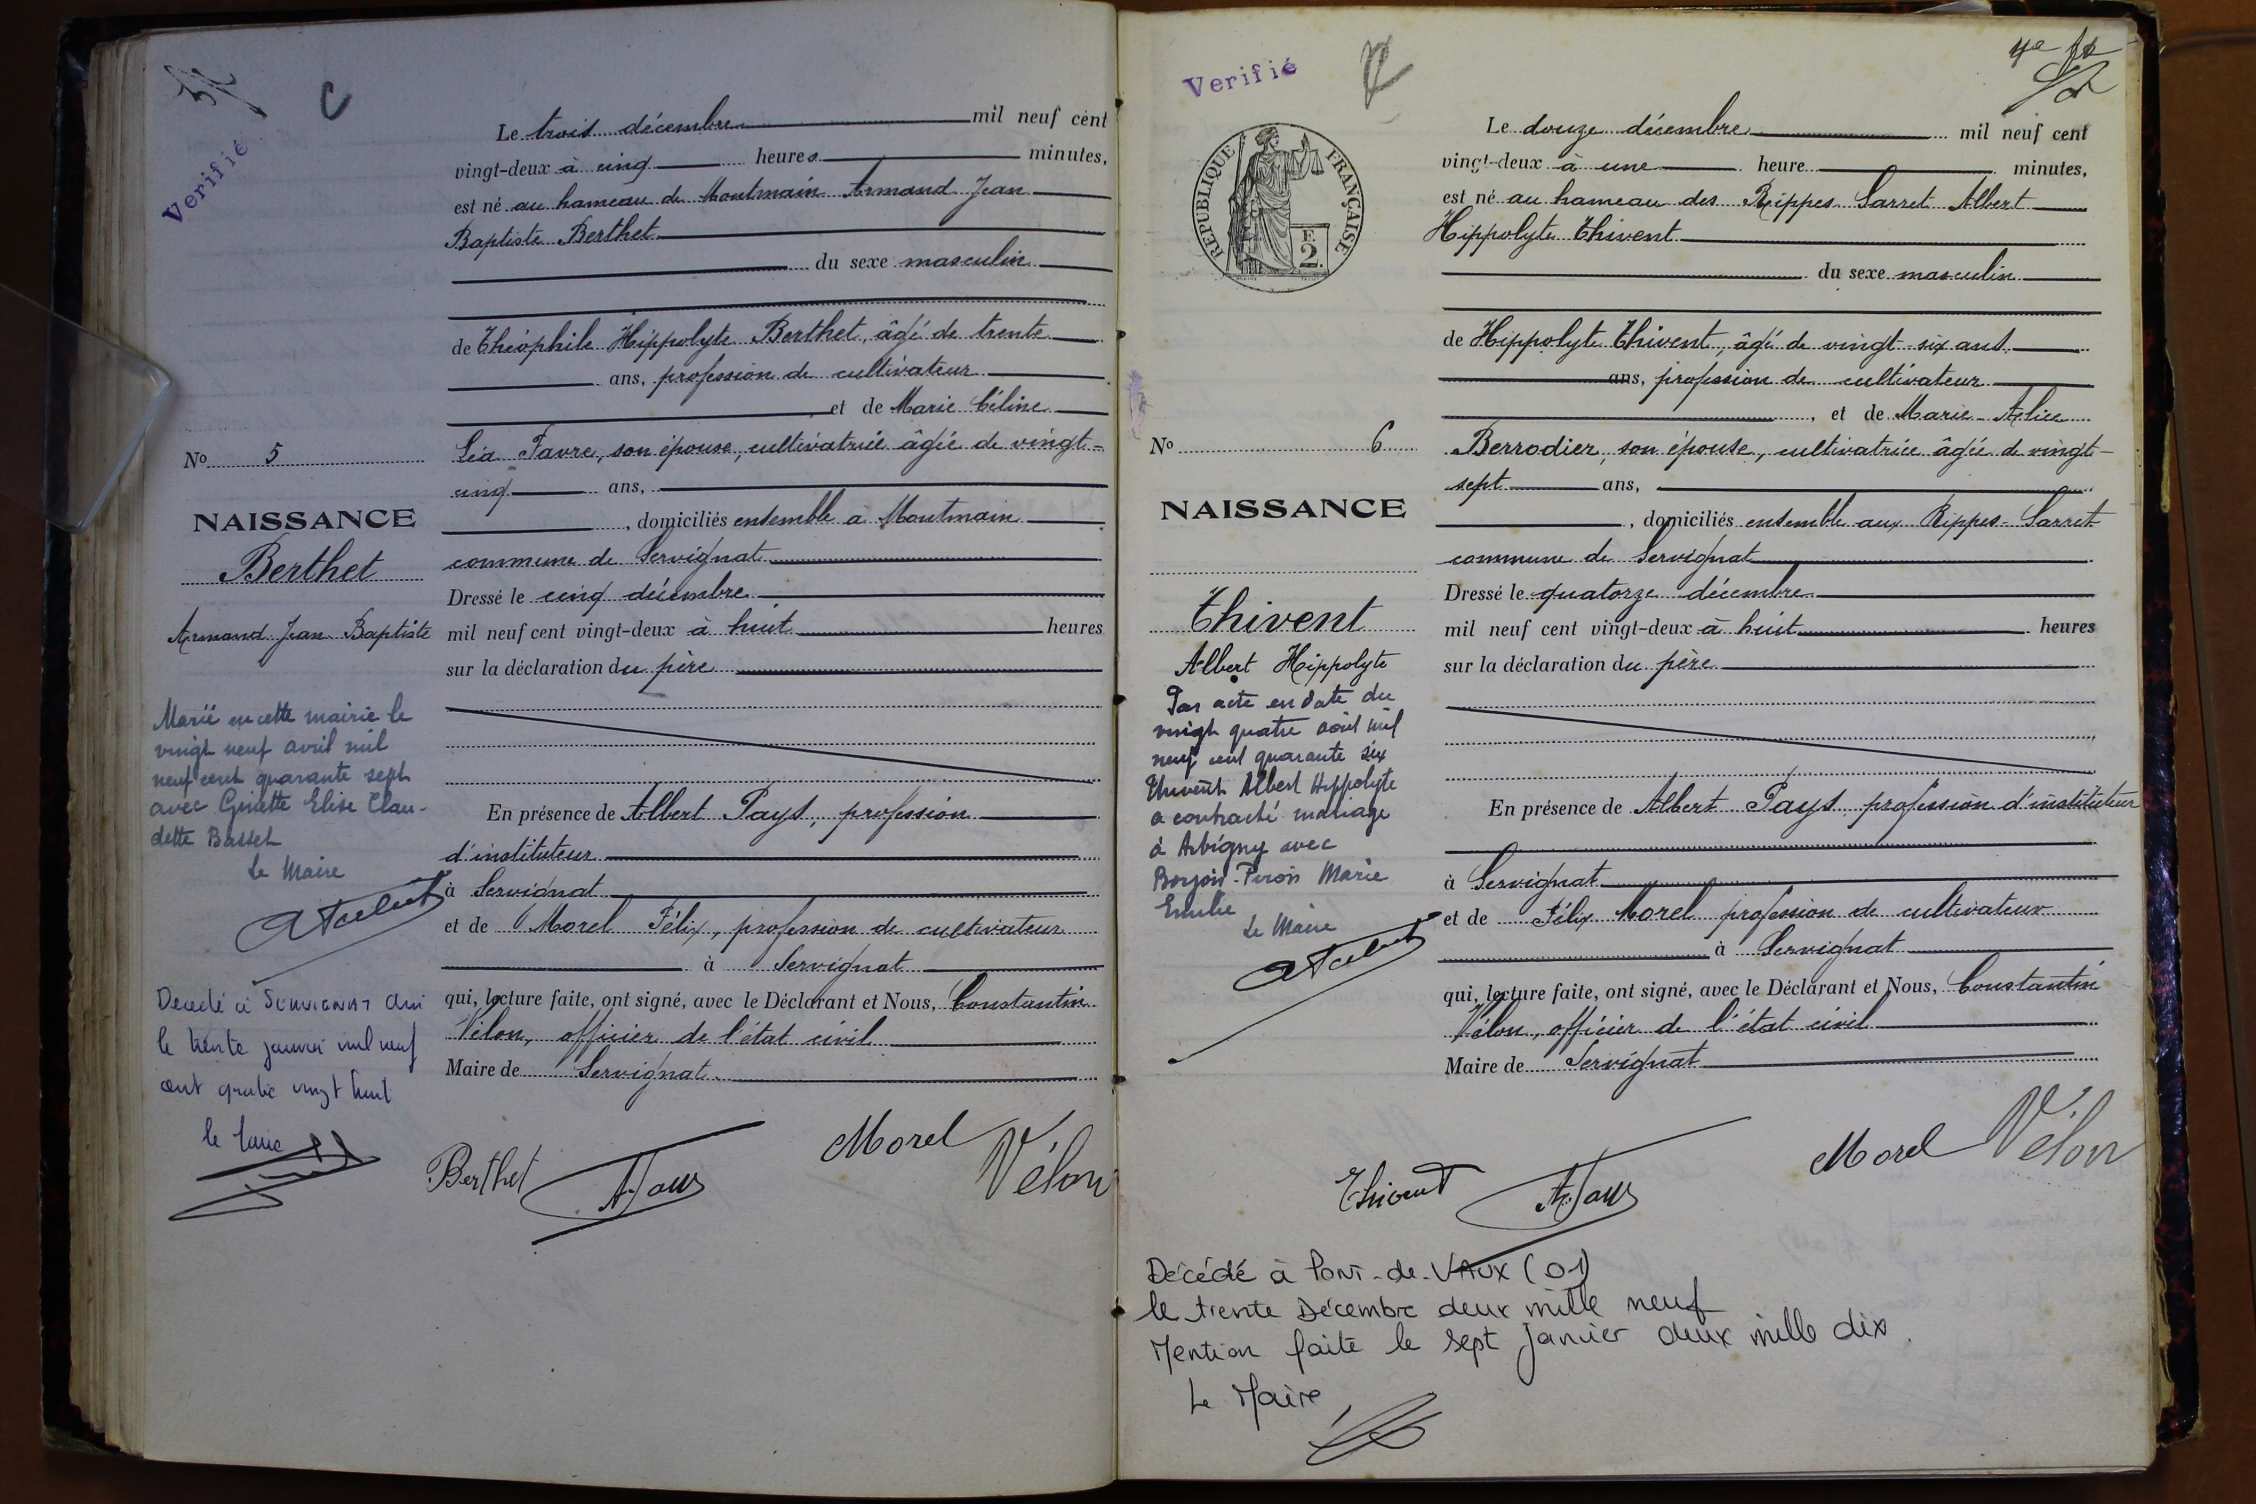 Verifié
C
Le trois décembre mil neuf cent
vingt-deux à cinq heures minutes,
est né au hameau de Montmain Armand Jean
Baptiste Berthet
du sexe masculin
de Théophile Hippolyte Berthet, âgé de trente
ans, profession de cultivateur
et de Marie Céline
Léa Favre, son épouse, cultivatrice âgée de vingt-
cinq ans,
, domiciliés ensemble à Montmain
commune de Servignat
Dressé le cinq décembre
mil neuf cent vingt-deux à huit heures
sur la déclaration du père
En présence de Albert Pays, profession
d'instituteur
à Servignat
et de Morel Félix, profession de cultivateur
à Servignat
qui, lecture faite, ont signé, avec le Déclarant et Nous, Constantin
Vélon, officier de l'état civil
Maire de Servignat
Berthet
Morel
Vélon
No 5
NAISSANCE
Berthet
Armand Jean Baptiste
Marié en cette mairie le
vingt neuf avril mil
neuf cent quarante sept
avec Ginette Elise Clau-
dette Basset
Le Maire
Décédé à SERVIGNAT Ain
le trente janvier mil neuf
cent quatre vingt huit
le Maire
Verifié
4e
RÉPUBLIQUE FRANÇAISE
F.
2.
Le douze décembre mil neuf cent
vingt-deux à une heure minutes,
est né au hameau des Rippes Sarret Albert
Hippolyte Thivent
du sexe masculin
de Hippolyte Thivent, âgé de vingt-six ans
ans, profession de cultivateur
, et de Marie-Alice
Berrodier, son épouse, cultivatrice âgée de vingt-
sept ans,
, domiciliés ensemble aux Rippes-Sarret
commune de Servignat
Dressé le quatorze décembre
mil neuf cent vingt-deux à huit heures
sur la déclaration du père
En présence de Albert Pays profession d'instituteur
à Servignat
et de Félix Morel profession de cultivateur
à Servignat
qui, lecture faite, ont signé, avec le Déclarant et Nous, Constantin
Vélon, officier de l'état civil
Maire de Servignat
Thivent
Morel
Vélon
No 6
NAISSANCE
Thivent
Albert Hippolyte
Par acte en date du
vingt quatre août mil
neuf cent quarante six
Thivent Albert Hippolyte
a contracté mariage
à Arbigny avec
Borjon-Piron Marie
Emilie
Le Maire
Décédé à PONT-de-VAUX (01)
le trente Décembre deux mille neuf
Mention faite le sept Janvier deux mille dix.
Le Maire,